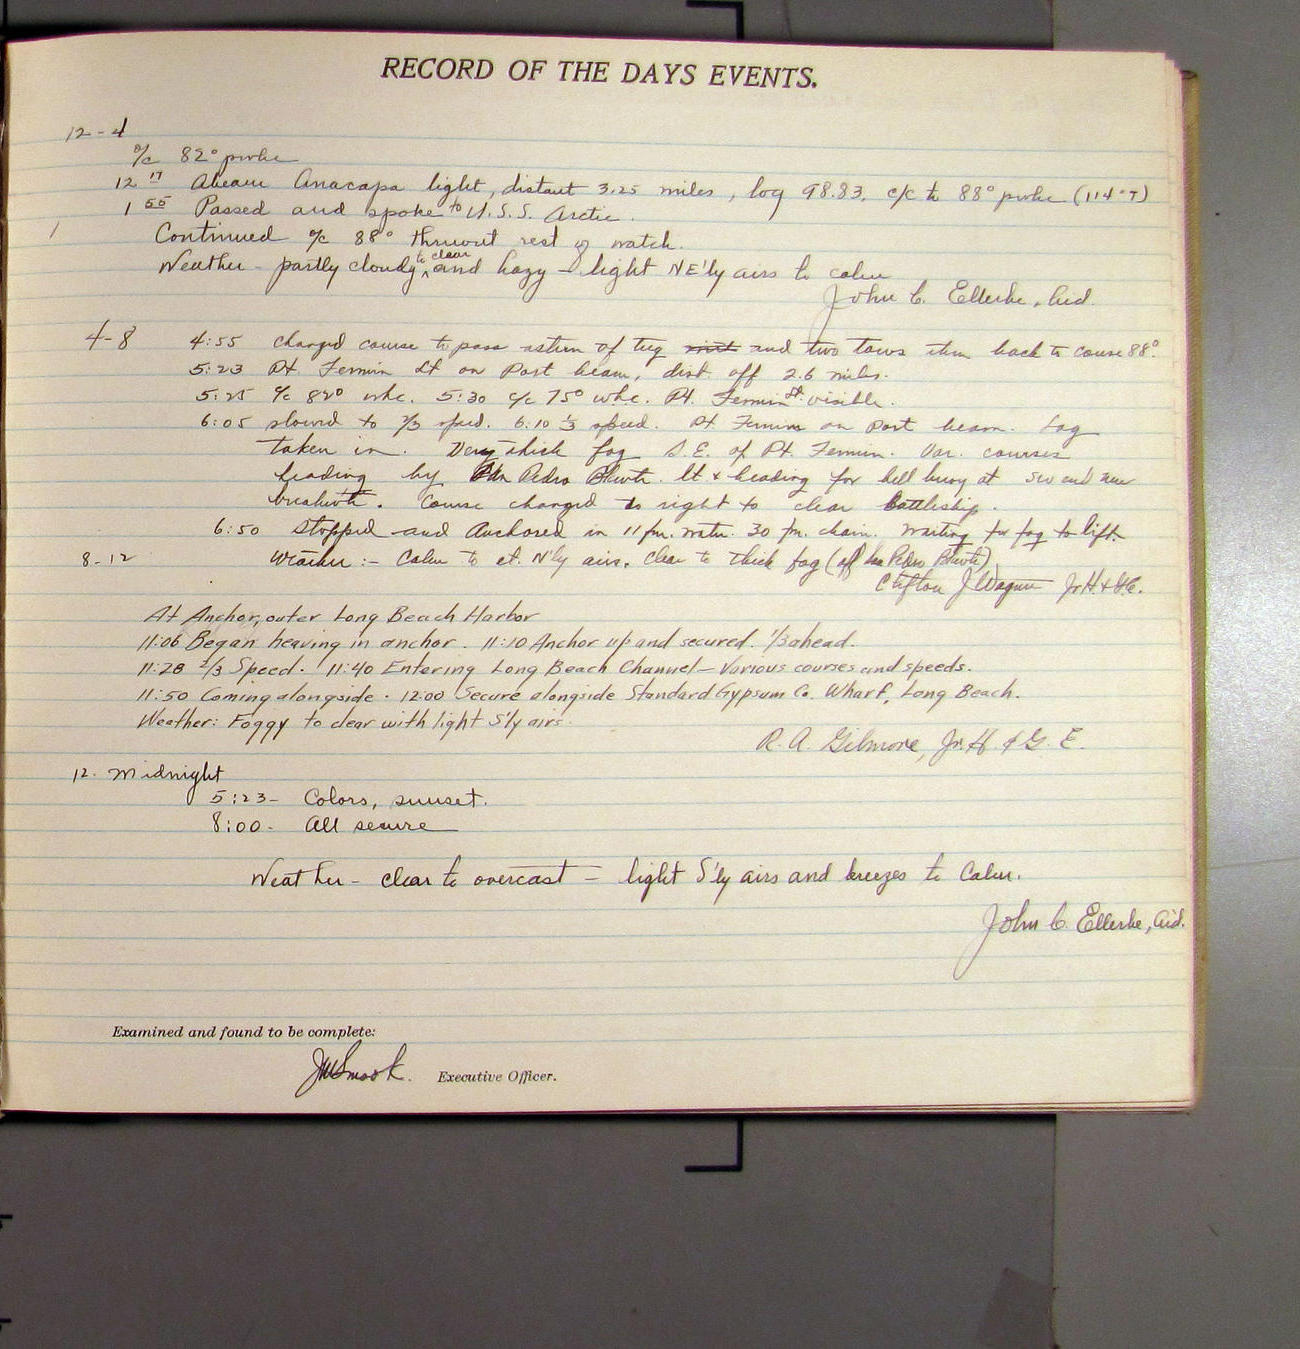 RECORD OF THE DAYS EVENTS.
12-4
o/c 82° pwhc
12 17 Abeam Anacapa light, distant 3.25 miles, log 98.83, c/c to 88° pwhc (114°T)
1 55 Passed and spoke to U.S.S. Arctic.
Continued o/c 88° thruout rest of watch.
Weather - partly cloudy to clear and hazy - light NE'ly airs to calm
John C. Ellerbe, Aid.
4-8 4:55 changed course to pass astern of tug and two tows then back to course 88°.
5:23 Pt. Fermin Lt on Port beam, dist. off 2.6 miles.
5:25 c/c 82° whc. 5:30 c/c 75° whc. Pt. Fermin Lt. visible.
6:05 slowed to 2/3 speed. 6:10 1/3 speed. Pt Fermin on Port beam. Log
taken in. Very thick fog S.E. of Pt. Fermin. Var. courses
heading by San Pedro Bkwtr. lt & heading for bell buoy at end new
breakwtr. Course changed to right to clear battleship.
6:50 Stopped and Anchored in 11 fm. watr. 30 fm. chain. Waiting for fog to lift.
8-12 Weather:- Calm to lt. N'ly airs. Clear to thick fog (off San Pedro Bkwtr)
Clifton J. Wagner Jr H & G.E.
At Anchor, outer Long Beach Harbor
11:06 Began heaving in anchor. 11:10 Anchor up and secured. 1/3 ahead.
11:28 2/3 Speed. 11:40 Entering Long Beach Channel - Various courses and speeds.
11:50 Coming alongside. 12:00 Secure alongside Standard Gypsum Co. Wharf, Long Beach.
Weather: Foggy to clear with light S'ly airs.
R. A. Gilmore, Jr. H. & G. E.
12. Midnight
5:23- Colors, sunset.
8:00- All secure
Weather - clear to overcast - light S'ly airs and breezes to Calm.
John C. Ellerbe, Aid.
Examined and found to be complete:
JM Smook. Executive Officer.